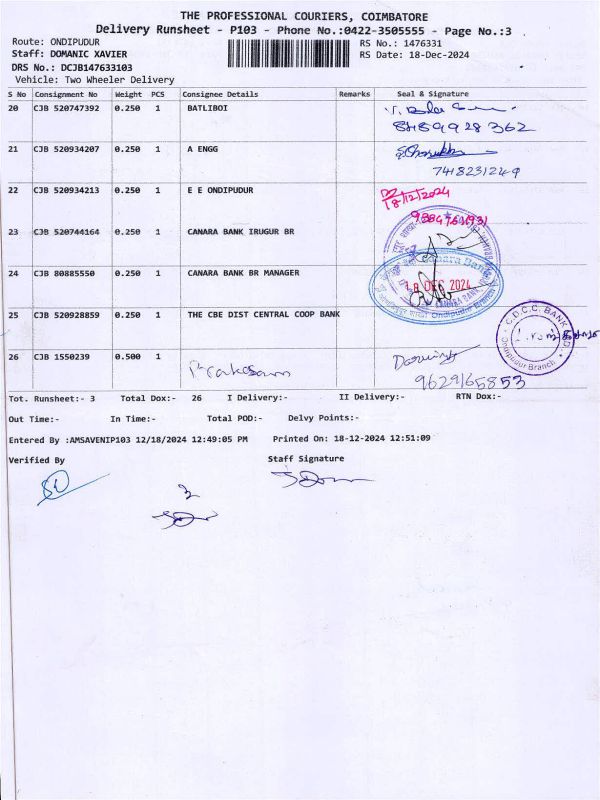 THE PROFESSIONAL COURIERS, COIMBATORE
Delivery Runsheet - P103 - Phone No.:0422-3505555 - Page No.:3
Route: ONDIPUDUR RS No.: 1476331
Staff: DOMANIC XAVIER RS Date: 18-Dec-2024
DRS No.: DCJB147633103
Vehicle: Two Wheeler Delivery
S No Consignment No Weight PCS Consignee Details Remarks Seal & Signature
20 CJB 520747392 0.250 1 BATLIBOI
8459928362
21 CJB 520934207 0.250 1 A ENGG
7418231249
22 CJB 520934213 0.250 1 E E ONDIPUDUR
18/12/2024
23 CJB 520744164 0.250 1 CANARA BANK IRUGUR BR
24 CJB 80885550 0.250 1 CANARA BANK BR MANAGER
Canara Bank
18 DEC 2024
Ondipudur Branch
25 CJB 520928859 0.250 1 THE CBE DIST CENTRAL COOP BANK
C.D.C.C. BANK LTD
Ondipudur Branch
26 CJB 1550239 0.500 1
9629165853
Tot. Runsheet:- 3 Total Dox:- 26 I Delivery:- II Delivery:- RTN Dox:-
Out Time:- In Time:- Total POD:- Delvy Points:-
Entered By :AMSAVENIP103 12/18/2024 12:49:05 PM Printed On: 18-12-2024 12:51:09
Verified By Staff Signature